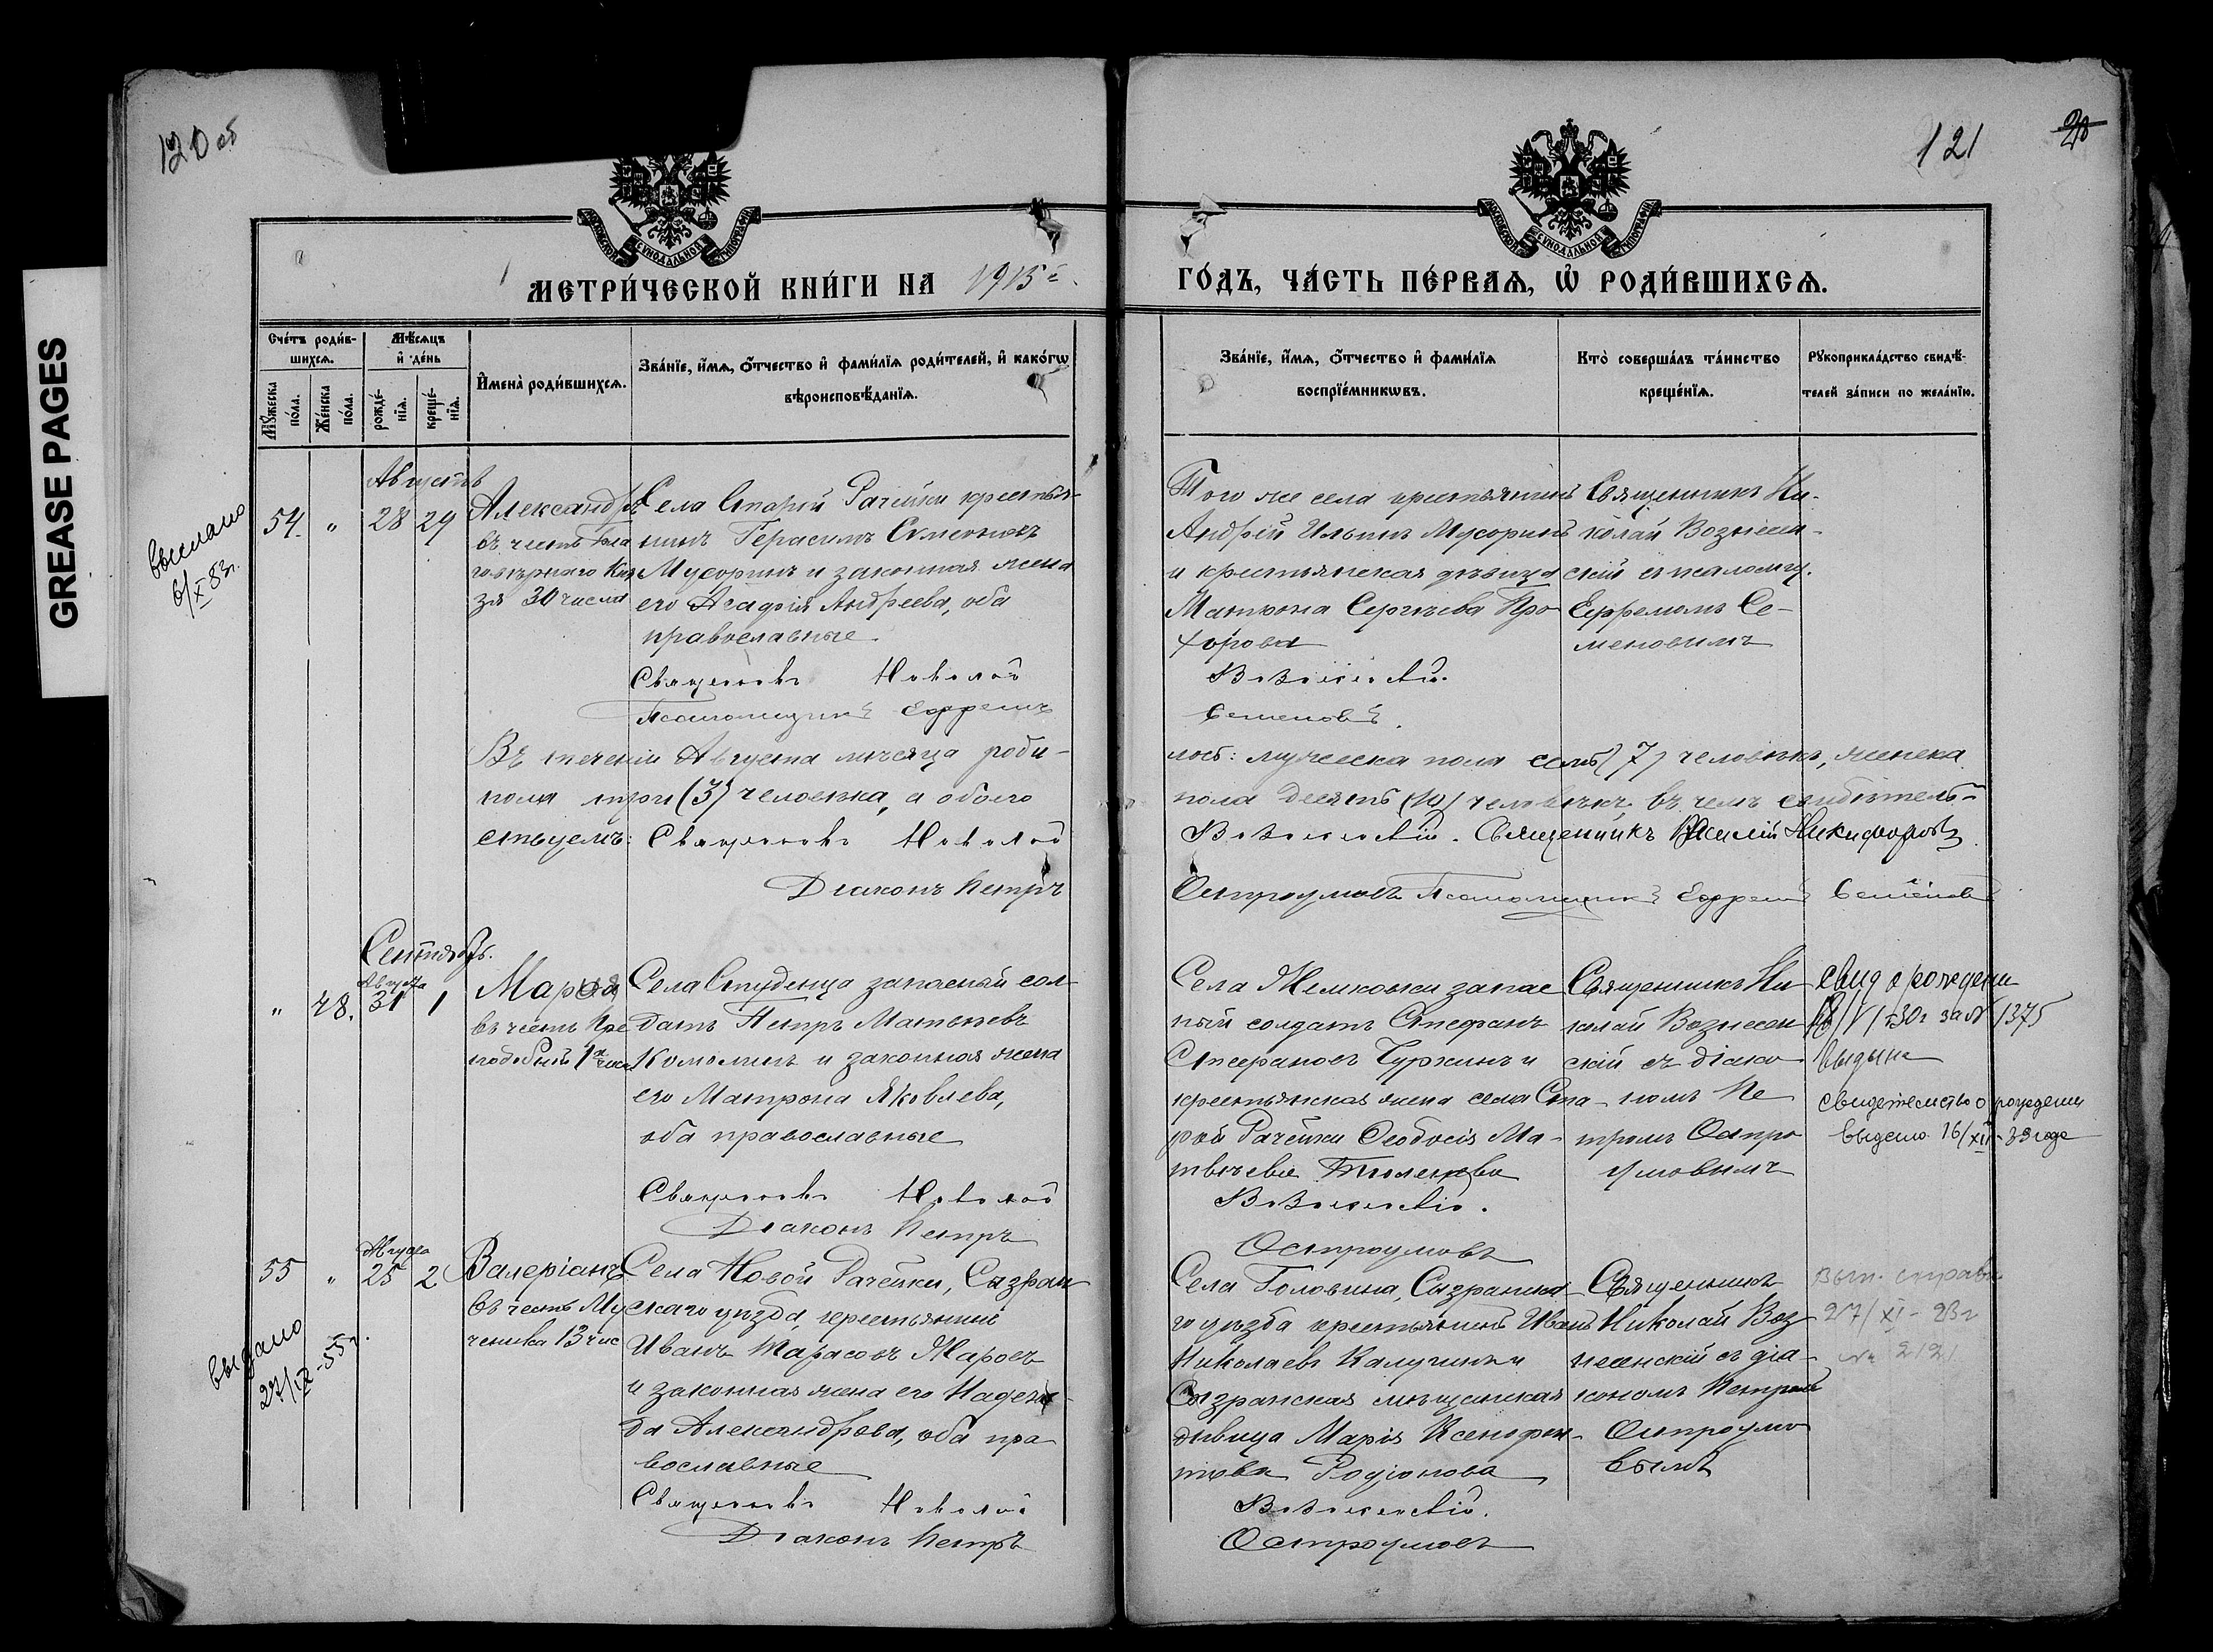 GREASE PAGES
120 об
121
20
МОСКОВСКОЙ СѴНОДАЛЬНОЙ ТИПОГРАФІИ
МОСКОВСКОЙ СѴНОДАЛЬНОЙ ТИПОГРАФІИ
МЕТРИ́ЧЕСКОЙ КНИ́ГИ НА 1915 й.
ГО́ДЪ, ЧА́СТЬ ПЕ́РВАѦ, Ѡ҆ РОДИ́ВШИХСѦ.
Сче́тъ роди́в-
шихсѧ.
Мꙋ́жеска по́ла.
Же́нска по́ла.
Мѣ́сѧцъ
и҆ де́нь
рожде́-
нїѧ.
креще́-
нїѧ.
И҆мена̀ роди́вшихсѧ.
Зва́нїе, и҆́мѧ, ѻ҆́тчество и҆ фами́лїѧ роди́телей, и҆ како́гѡ
вѣроисповѣ́данїѧ.
Зва́нїе, и҆́мѧ, ѻ҆́тчество и҆ фами́лїѧ
воспрїе́мникѡвъ.
Кто̀ соверша́лъ та́инство
креще́нїѧ.
Рꙋкоприкла́дство свидѣ́-
телей за́писи по жела́нїю.
выслано
6/X 83г.
Августъ
54. " 28 29
Александръ
въ честь бла
говѣрнаго Кня
зя 30 числа
Села Старой Рачейки крестья-
нинъ Герасимъ Симеоновъ
Мусоринъ и законная жена
его Агафія Андреева, оба
православные.
Священникъ Николай
Псаломщикъ Ефремъ
Того же села крестьянинъ
Андрей Ильинъ Мусоринъ
и крестьянская дѣвица
Матрона Сергѣева Про
хорова
Вознесенскій.
Семеновъ.
Священникъ Ни-
колай Вознесен-
скій съ псаломщ.
Ефремомъ Се-
меновымъ
Въ теченіи Августа мѣсяца роди-
лось: мужеска пола семь (7) человѣкъ, женска
пола три (3) человѣка, а обоего
пола десять (10) человѣкъ въ чемъ свидѣтель-
ствуемъ: Священникъ Николай
Вознесенскій. Священникъ Василій Никифоровъ.
Діаконъ Петръ
Остроумовъ Псаломщикъ Ефремъ Семеновъ
Сентябрь.
Августа
" 48. 31 1
Марія
въ честь Пре
подобной 1 числа
Села Студенца запасный сол-
датъ Петръ Матвѣевъ
Комолинъ и законная жена
его Матрона Яковлева,
оба православные
Священникъ Николай
Діаконъ Петръ
Села Жемковки запас
ный солдатъ Стефанъ
Стефановъ Чуркинъ и
крестьянская жена села Ста-
рой Рачейки Ѳеодосія Ма-
твѣева
Вознесенскій.
Остроумовъ
Священникъ Ни
колай Вознесен
скій съ діако
номъ Пе
тромъ Остро
умовымъ
свид о рожден
за № 1375
выдано
свидетельство о рождении
выдано 16/XII-39 года
выдано
27/IX-55г.
Августа
55 " 25 2
Валеріанъ
въ честь Му
ченика 13 чис
Села Новой Рачейки, Сызран
скаго уѣзда, крестьянинъ
Иванъ Тарасовъ Жаровъ
и законная жена его Надеж-
да Александрова, оба пра
вославные
Священникъ Николай
Діаконъ Петръ
Села Головина, Сызранска-
го уѣзда крестьянинъ Иванъ
Николаевъ Калугинъ и
Сызранская мѣщанская
дѣвица Марія Ксенофон-
това Родіонова
Вознесенскій.
Остроумовъ
Священникъ
Николай Воз
несенскій съ діа-
кономъ Петромъ
Остроумо
вымъ
Вып. справк
27/XI-23г
№ 2121